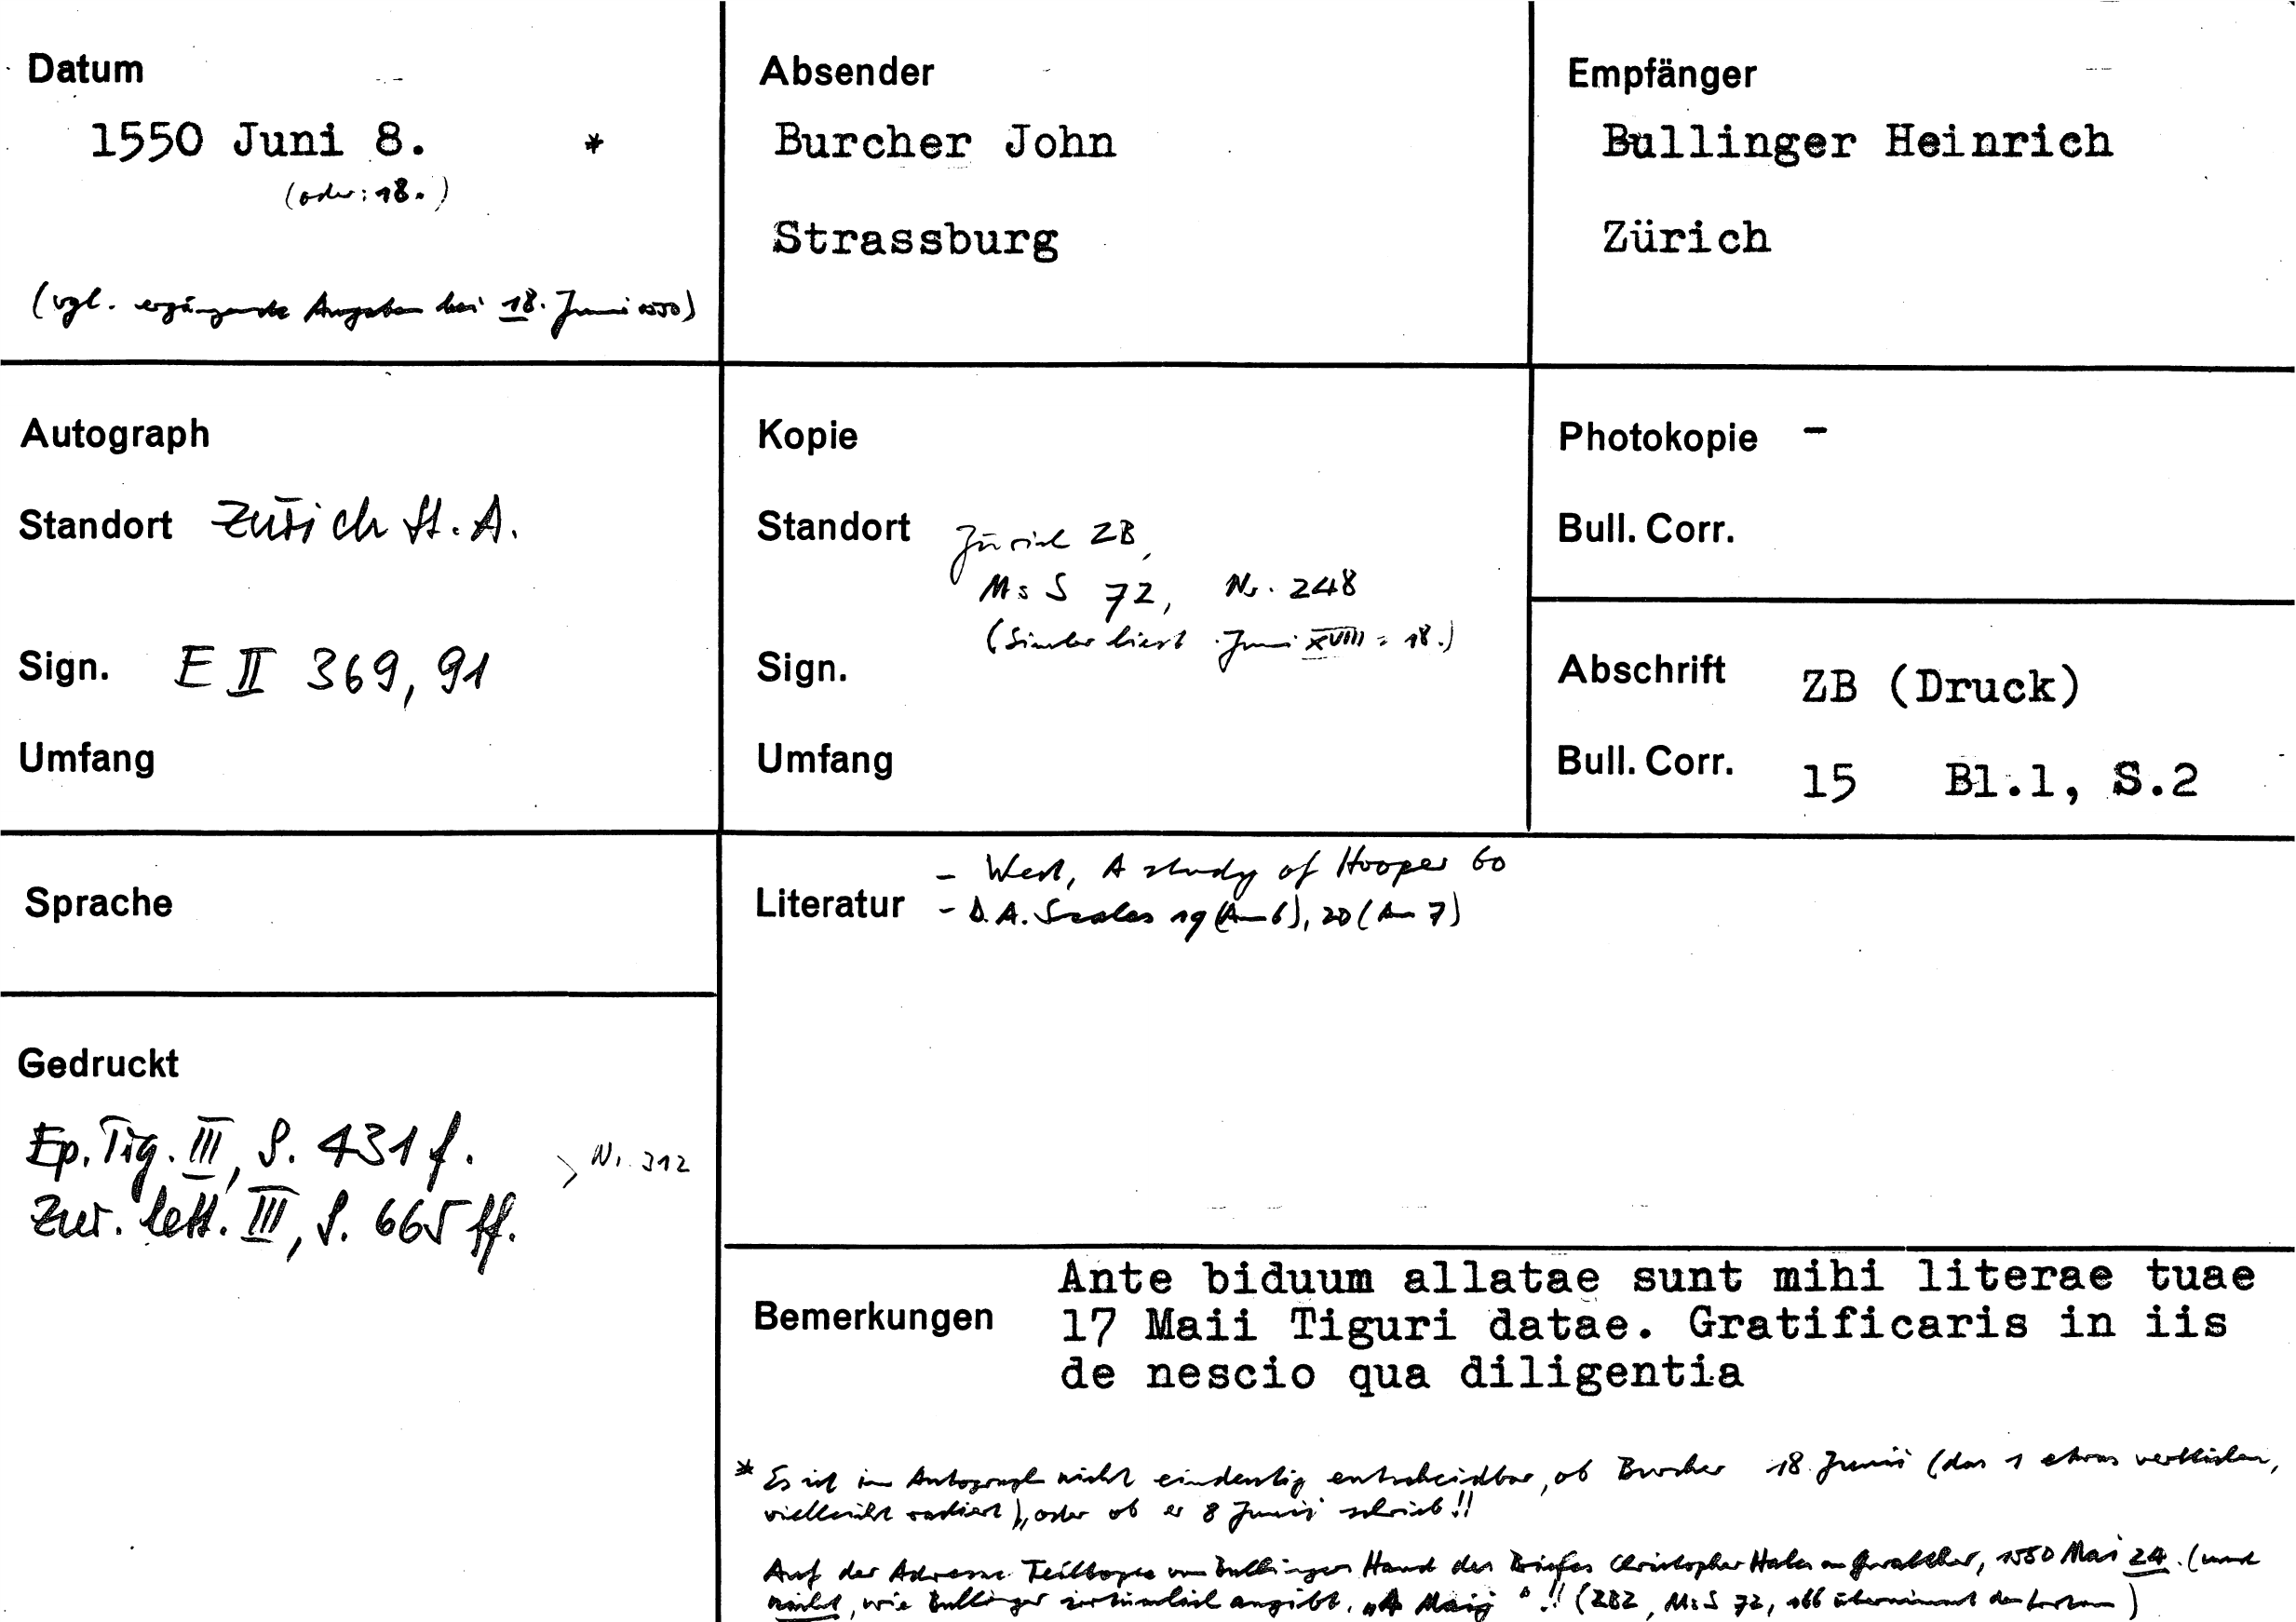 Datum
1550 Juni 8. *
(oder: 18.)
(vgl. ergänzende Angaben bei 18. Juni 1550)
Absender
Burcher John
Strassburg
Empfänger
Bullinger Heinrich
Zürich
Autograph
Standort Zürich St. A.
Sign. E II 369, 91
Umfang
Kopie
Standort Zürich ZB,
Ms S 72, Nr. 248
(Simler liest Juni XVIII = 18.)
Sign.
Umfang
Photokopie -
Bull. Corr.
Abschrift ZB (Druck)
Bull. Corr. 15 Bl.1, S.2
Sprache
Literatur
- West, A study of Hooper 60
- D.A. Scales 19 (Am 6), 20 (Am 7)
Gedruckt
Ep. Tig. III, S. 431 f.
Zur. lett. III, S. 665 ff.
> Nr. 312
Bemerkungen
Ante biduum allatae sunt mihi literae tuae
17 Maii Tiguri datae. Gratificaris in iis
de nescio qua diligentia
* Es ist im Autograph nicht eindeutig entscheidbar, ob Burcher 18 Junii (das 1 etwas verblichen,
vielleicht radiert), oder ob er 8 Junii schrieb!!
Auf der Adresse Teilkopie von Bullingers Hand des Briefes Christopher Hales an Gwalther, 1550 Mai 24. (und
nicht, wie Bullinger irrtümlich angibt, "4 Maij"!! (ZBZ, Ms S 72, 166 übernimmt den